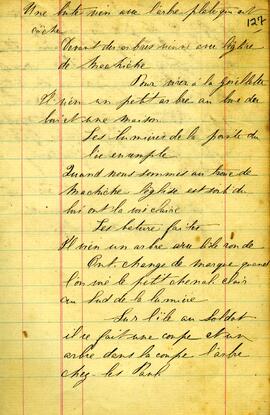 127
Une bute vien avec l'arbre plate qui est
cochée
Devant des arbres vienne avec l'église
de Machiche
Pour virer à la Goillette
Il vien un petit arbre au bou du
bois et une maison
Les lumière de la pointe du
lac ensemple
Quand nous sommes au trave de
Machiche l'église est sorti du
bois on t la voie claire
Les batures faites
Il vien un arbre avec l'isle ronde
On t. change de marque quand
l'on voie le petit chenal clair
au Sud de la lumière
Sur l'île au Soldat
il ce fait une coupe et un
arbre dans la coupe l'arbre
chez les Paul